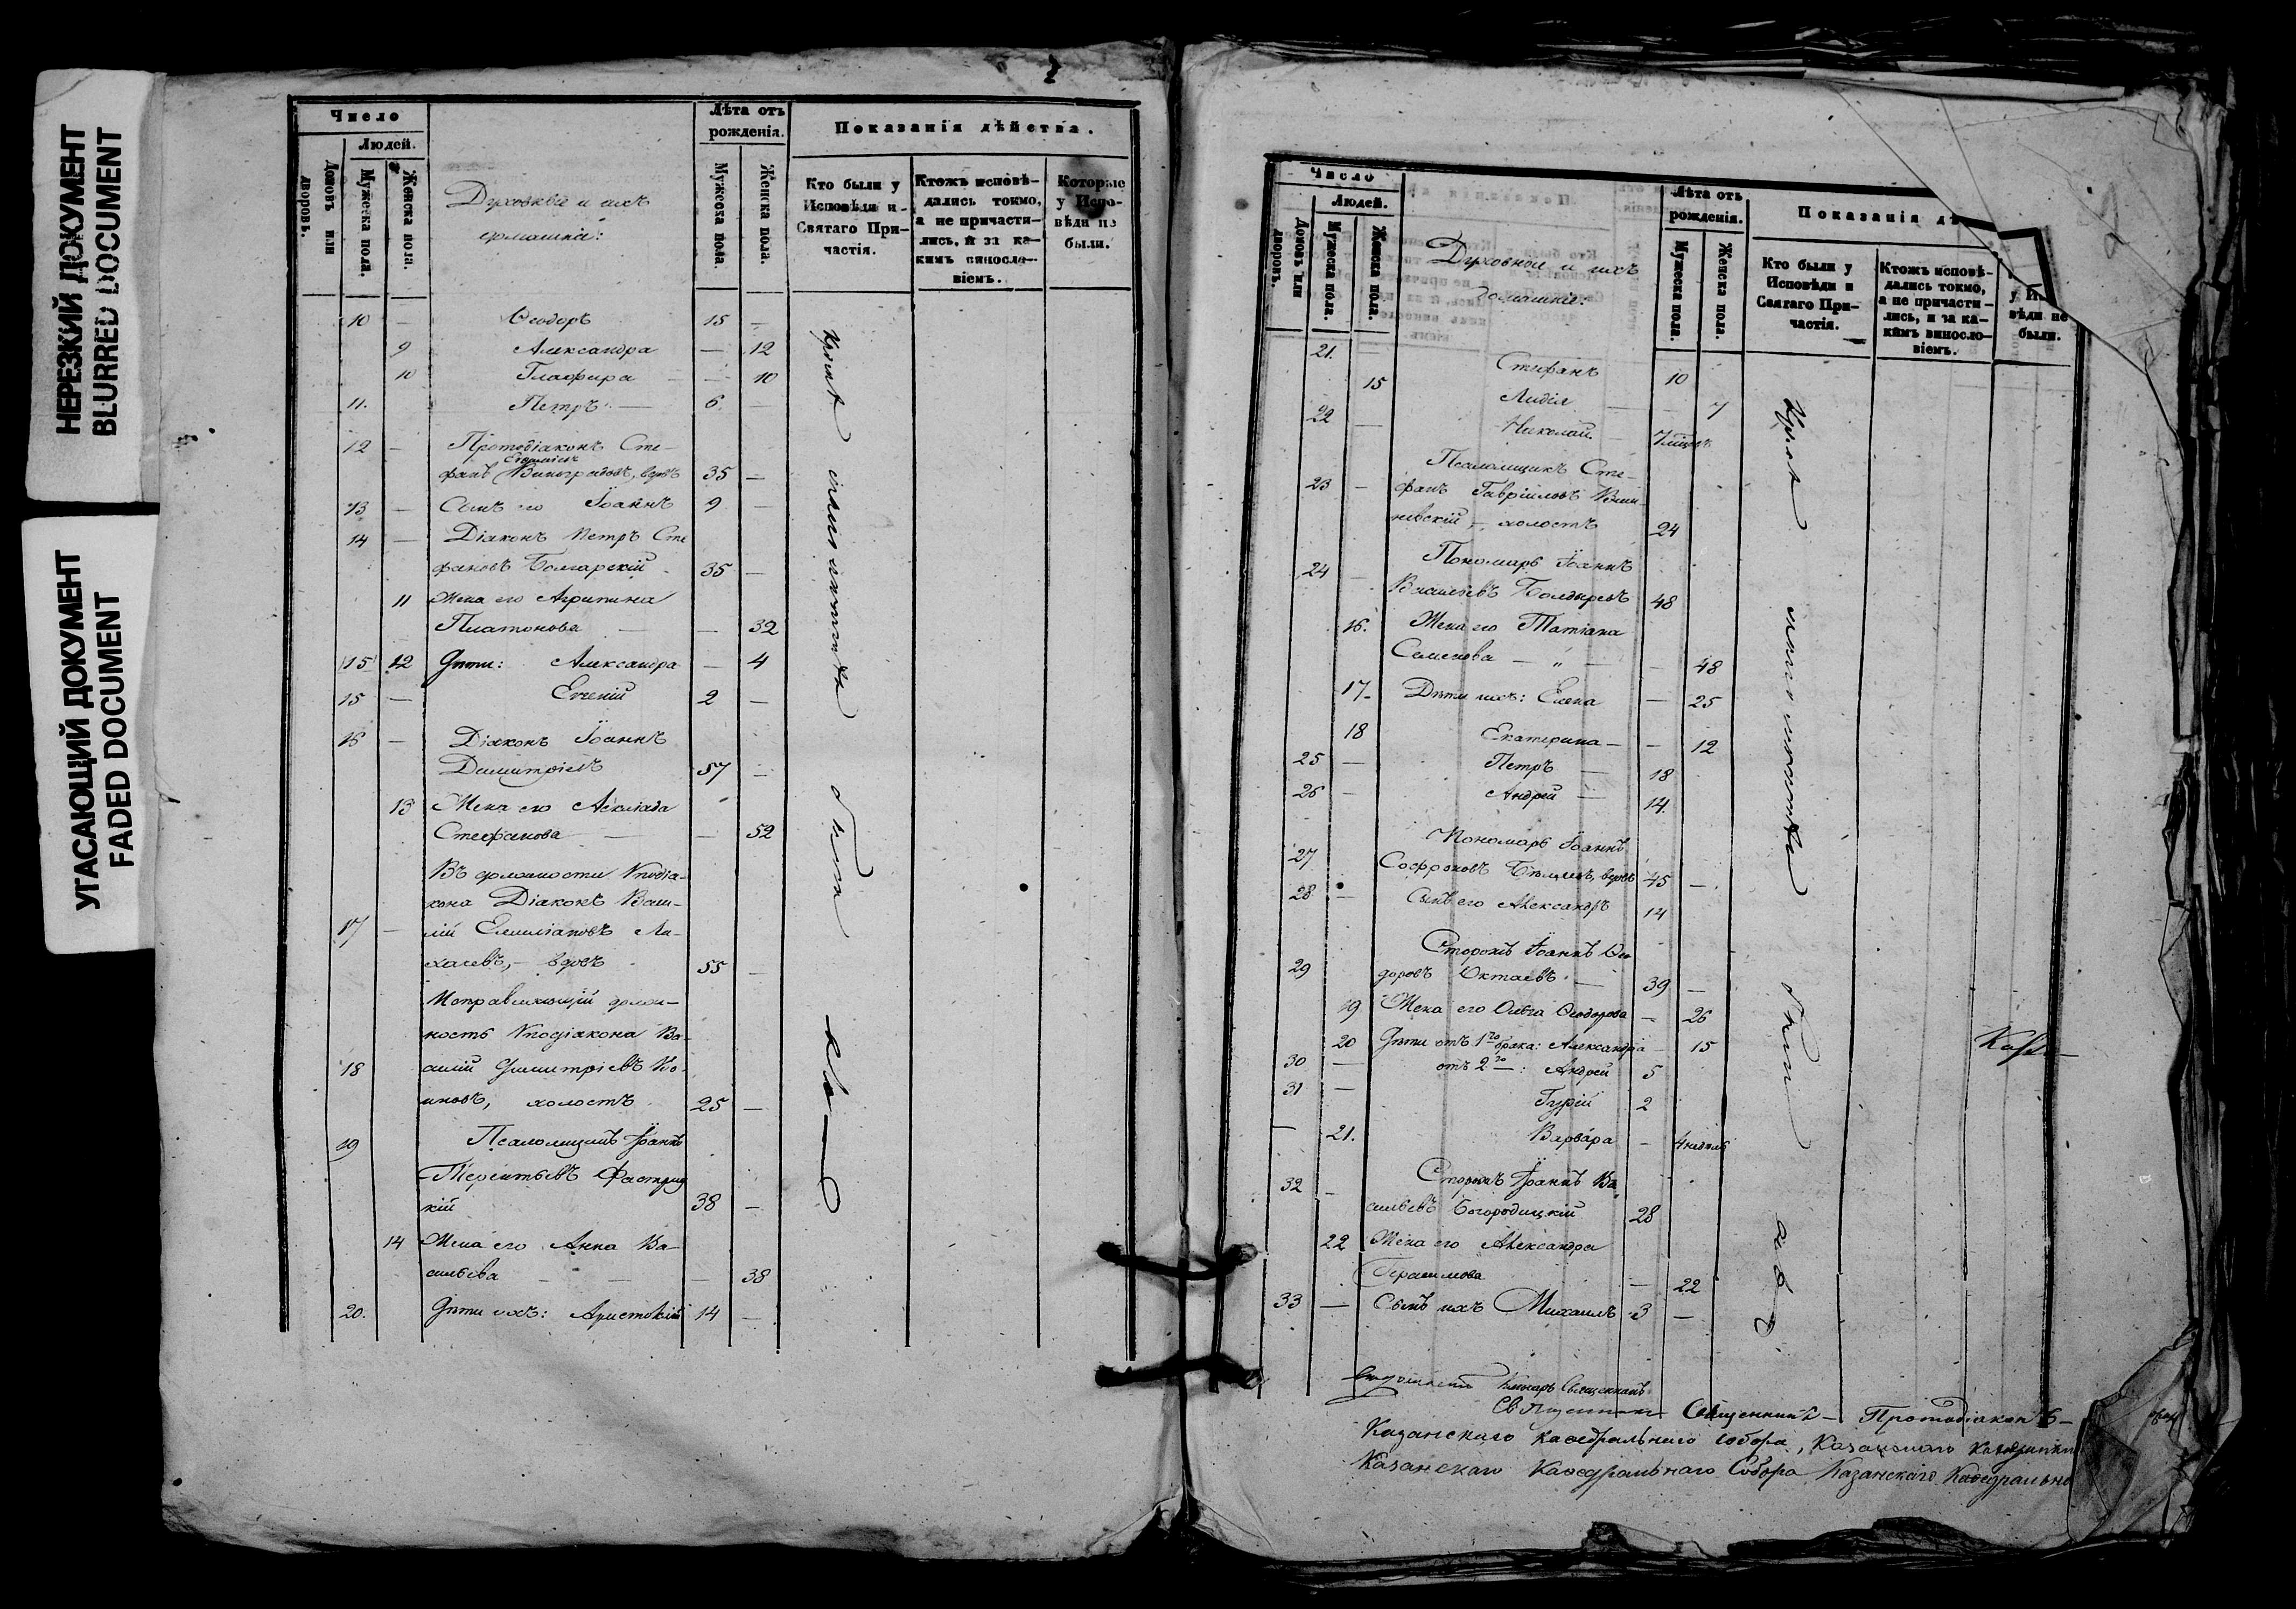 НЕРЕЗКИЙ ДОКУМЕНТ
BLURRED DOCUMENT
УГАСАЮЩИЙ ДОКУМЕНТ
FADED DOCUMENT
2
Число
Людей.
Домовъ или дворовъ.
Мужеска пола.
Женска пола.
Духовные и ихъ
домашніе:
Лѣта отъ рожденія.
Мужеска пола.
Женска пола.
Показанія дѣйства.
Кто были у Исповѣди и Святаго Причастія.
Ктожъ исповѣдались токмо, а не причастились, и за какимъ винословіемъ.
Которые у Исповѣди не были.
10 — Ѳеодоръ 15 —
9 Александра — 12
10 Глафира — — 10
11. Петръ — 6. —
12 — Протодіаконъ Сте-
фанъ Виноградовъ, вдовъ 35 —
13 — Сынъ его Іоаннъ 9 —
14 — Діаконъ Петръ Сте
фановъ Болгарскій 35 —
11 Жена его Агрипина
Платонова — — 32
15 12 Дѣти: Александра — 4
15 — Евгеній 2 —
16 — Діаконъ Іоаннъ
Димитріевъ 57 —
13 Жена его
Стефанова — — 52
Въ должности Иподіа-
кона Діаконъ Васи-
17 — лій Емиліановъ
вдовъ 55 —
Исправляющій долж-
ность Иподіакона Ва-
18 силій Димитріевъ
холостъ 25 —
19 Псаломщикъ Іоаннъ
Терентьевъ
кій 38 —
14 Жена его Анна Ва-
сильева — — — 38
20. Дѣти ихъ: 14 —
были
Число
Людей.
Домовъ или дворовъ.
Мужеска пола.
Женска пола.
Духовные и ихъ
домашніе:
Лѣта отъ рожденія.
Мужеска пола.
Женска пола.
Показанія дѣ
Кто были у Исповѣди и Святаго Причастія.
Ктожъ исповѣдались токмо, а не причастились, и за какимъ винословіемъ.
у И вѣди не были.
21. — Стефанъ 10
15 Лидія — — 7
22 — Николай —
Псаломщикъ Сте-
23 — фанъ Гавріиловъ
— холостъ 24
Пономарь Іоаннъ
24 — Васильевъ Болдыревъ 48
16. Жена его Татіана
Семенова — „ — — 48
17- Дѣти ихъ: Елена — 25
18 Екатерина — — 12
25 — Петръ — 18
26 — Андрей — 14.
Пономарь Іоаннъ
27 Софроновъ вдовъ 45 —
28 — Сынъ его Александръ 14
Сторожъ Іоаннъ Ѳео
29 доровъ Октаевъ — 39 —
19 Жена его Ольга Ѳеодорова — 26
20 Дѣти отъ 1го брака: Александра — 15
30 — отъ 2го —: Андрей 5
31 — Гурій 2
— 21. Варвара — 4 недѣль
32 — Сторожъ Іоаннъ Ва
сильевъ Богородицкій 28
22 Жена его Александра
Герасимова — 22
33 — Сынъ ихъ Михаилъ 3 —
были
Ключарь Священникъ
Священникъ — Протодіаконъ —
Казанскаго каѳедральнаго собора, Казанскаго
Казанскаго Каѳедральнаго Собора Казанскаго Каѳедрально